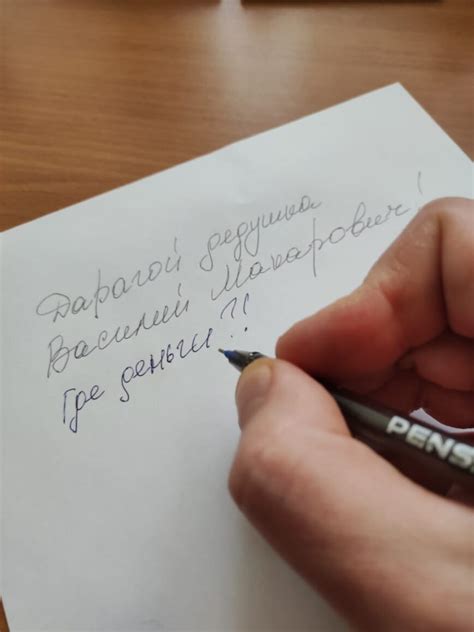 Дарагой дедушка
Василий Макарович!
Где деньги?!
PENS